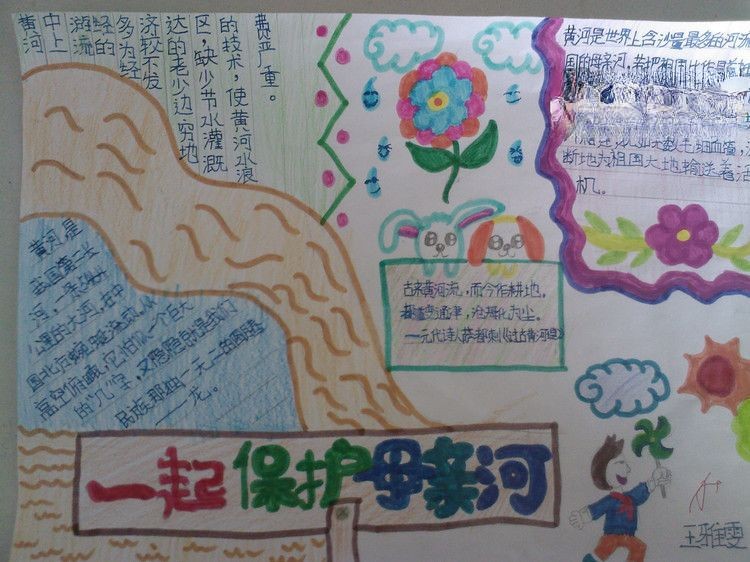 黄河
中上
游流
经的
多为经
济较不发
达的老少边穷地
区,缺少节水灌溉
的技术,使黄河水浪
费严重。
黄河是世界上含沙量最多的河流
国的母亲河,若把祖国比作昂首
断地为祖国大地输送着活
机。
黄河是
我国第二长
河,
公里的大河,在中
国北方蜿蜒
高空俯瞰,它恰似一个巨大
的"几"字,又隐隐
民族那独一无二的图腾
——龙。
古来黄河流,而今作耕地。
都道变通津,沧海化为尘。
——元代诗人萨都剌《过古黄河堤》
一起保护母亲河
王雅雯